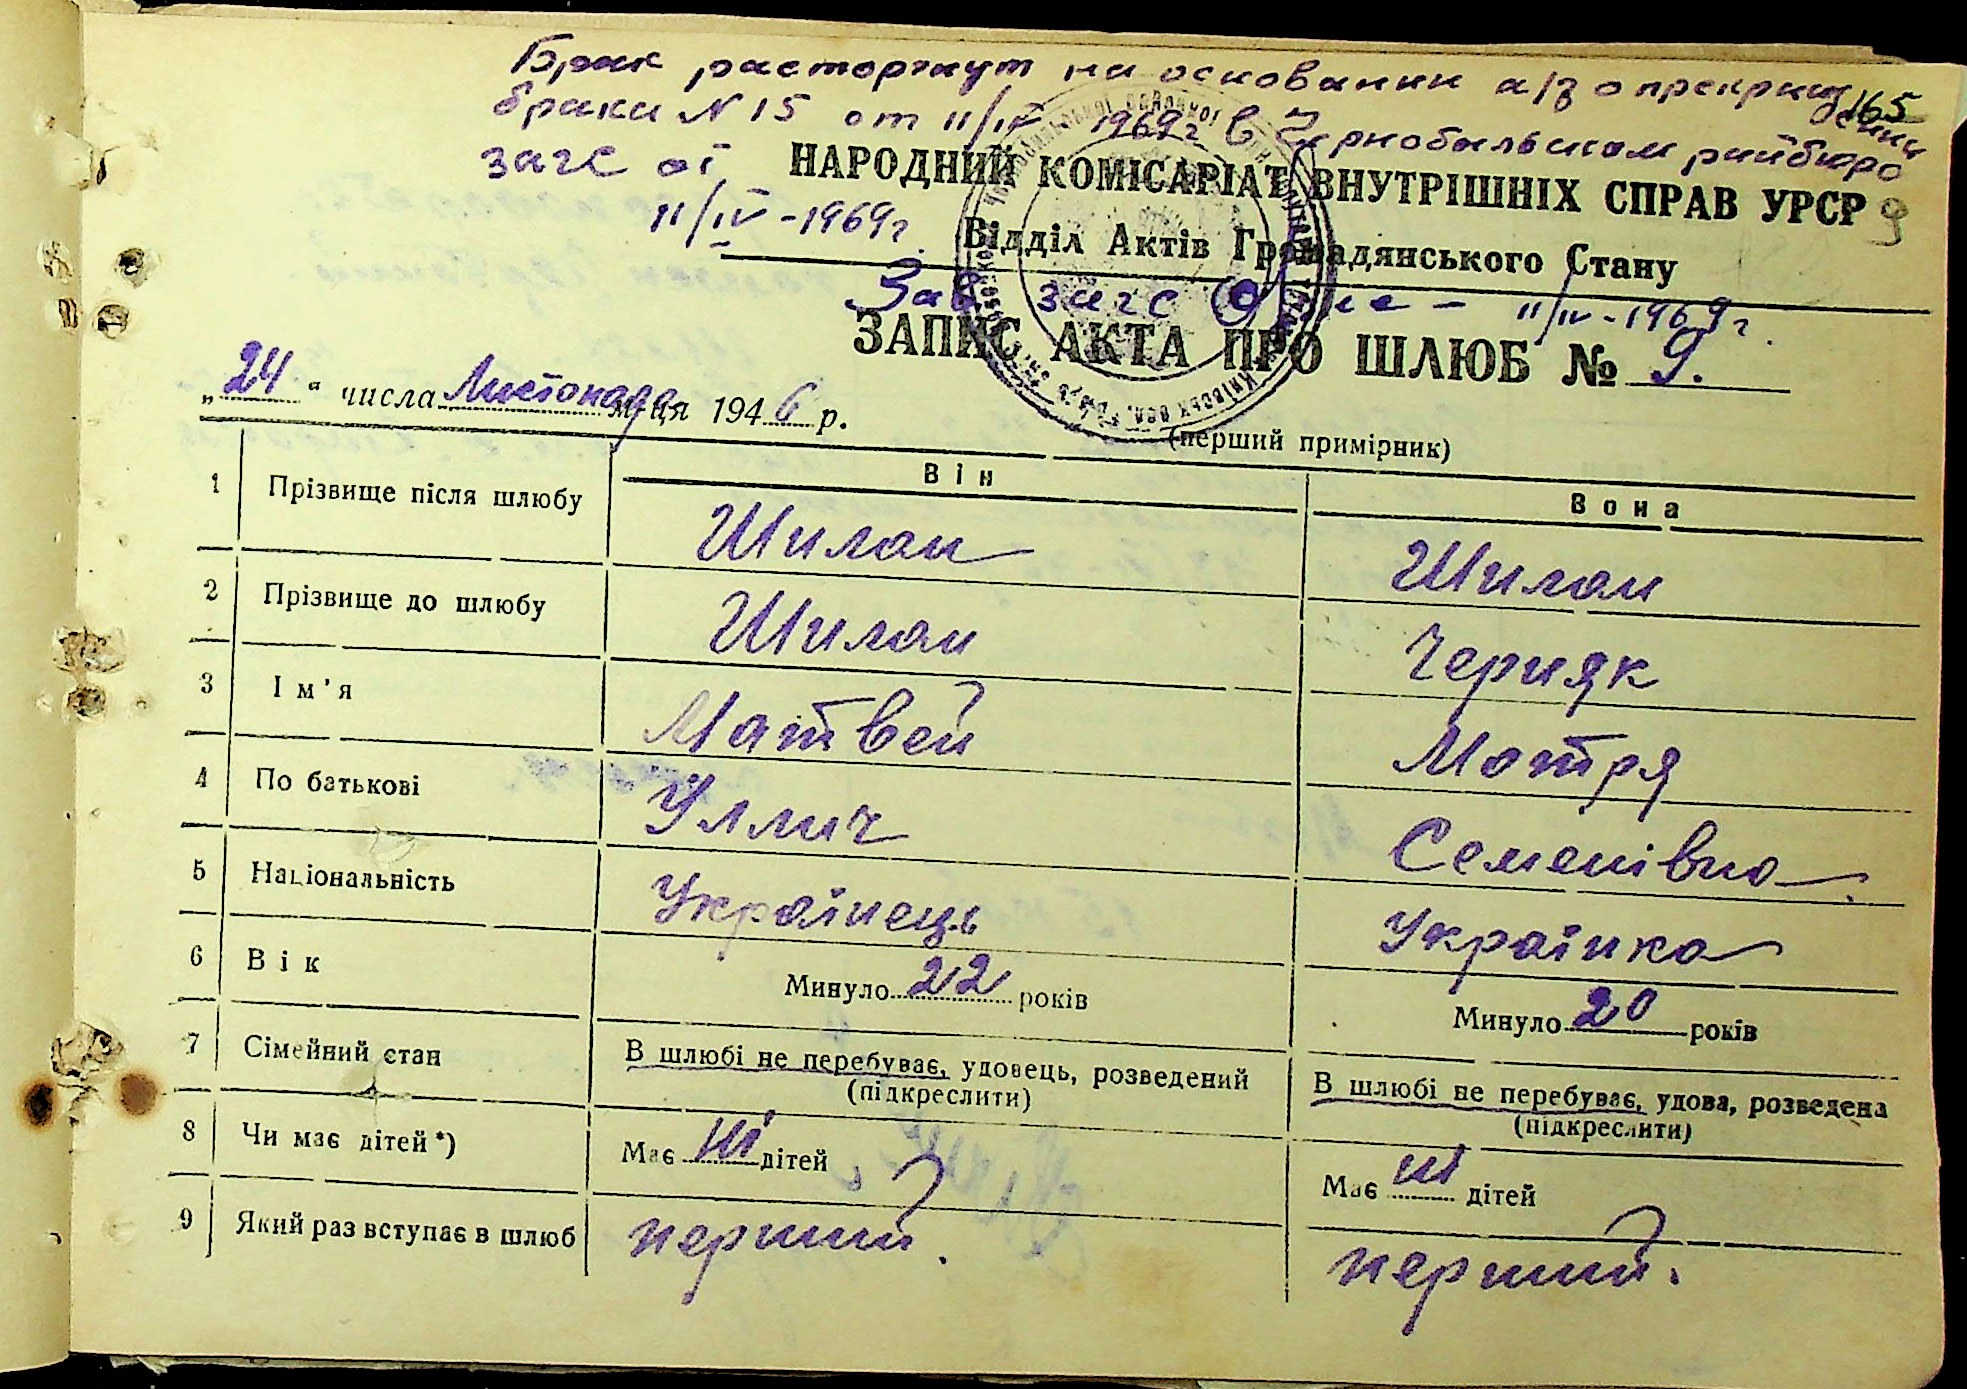 Брак расторгнут на основании а/з о прекращении
брака N 15 от 11/IV 1969г в Чернобыльском райбюро
загс от
11/IV-1969г.
165
НАРОДНИЙ КОМІСАРІАТ ВНУТРІШНІХ СПРАВ УРСР
9
Відділ Актів Громадянського Стану
Зав загс 11/IV-1969г.
ЗАПИС АКТА ПРО ШЛЮБ № 9.
„24“ числа Листопада м-ця 1946 р.
(перший примірник)
Він Вона
1 Прізвище після шлюбу Шилан Шилан
2 Прізвище до шлюбу Шилан Черняк
3 Ім'я Матвей Мотря
4 По батькові Уллич Семенівна
5 Національність Українець Українка
6 Вік Минуло 22 років Минуло 20 років
7 Сімейний стан В шлюбі не перебуває, удовець, розведений В шлюбі не перебуває, удова, розведена
(підкреслити) (підкреслити)
8 Чи має дітей*) Має ні дітей Має ні дітей
9 Який раз вступає в шлюб перший. перший.